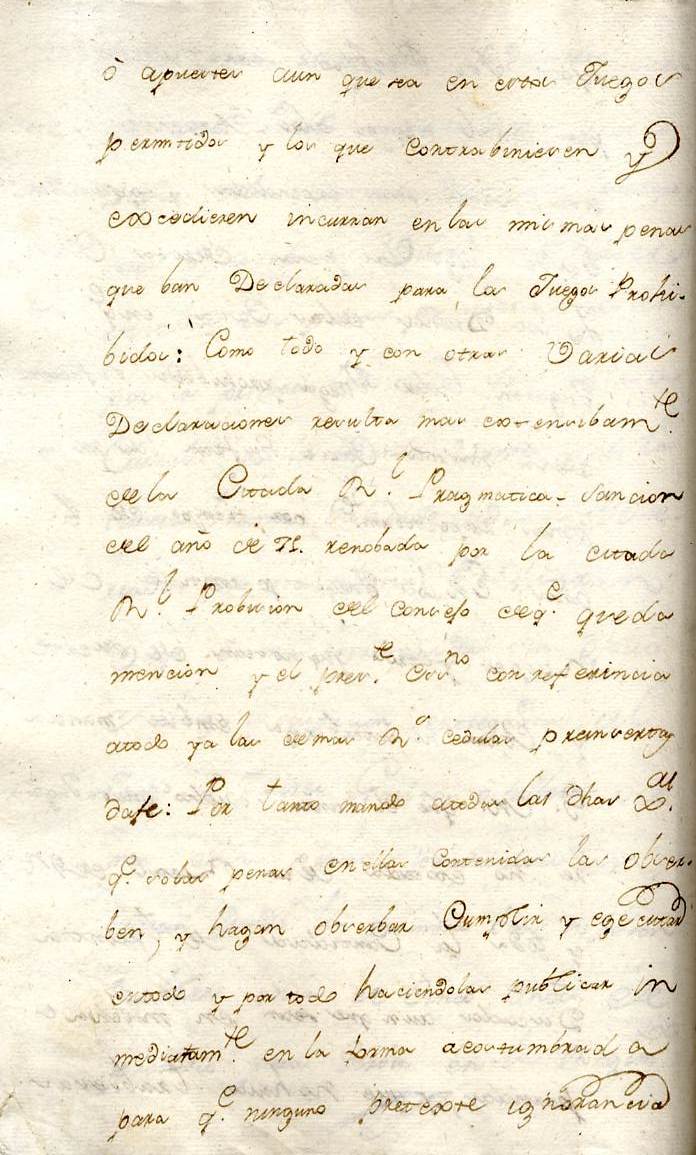 ò apuestes aun que sea en estos Juegos
permitidos y los que contrabinieren y
excedieren incurran en las mismas penas
que ban Declaradas para los Juegos Prohi-
bidos: Como todo y con otras Varias
Declaraciones resulta mas extensibam.te
de la Citada R.l Pragmatica-Sancion
del año de 71. renobada por la citada
R.l Probision del Consejo de q.e queda
mencion y el pres.te Ess.no con referincia
atodo ya las demas R.s cedulas preinsertas
dafe: Por tanto mando atodas las dhas
q.e solas penas en ellas contenidas las obser-
ben, y hagan obserbar Cumplir y egecutar
entodo y por todo haciendolas publicar in
mediatam.te en la forma acostumbrada
para q.e ninguno pretexte ignorancia